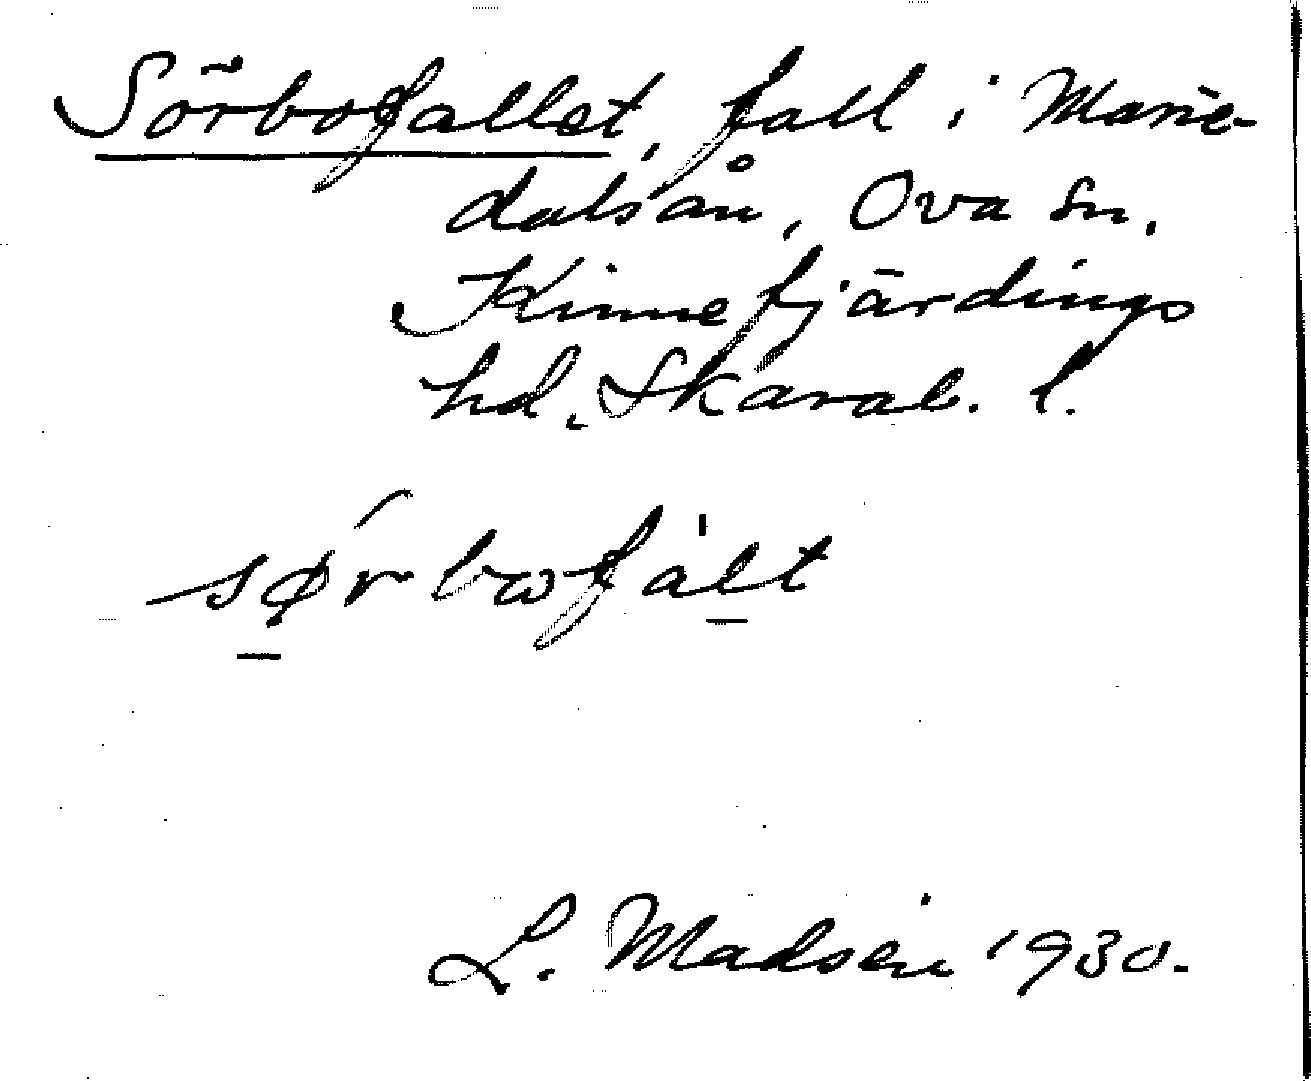 Sörbofallet, fall i Marie-
dalsån, Ova sn,
Kinnefjärdings
hd, Skarab. l.
sørbofalt
L. Madsén 1930.